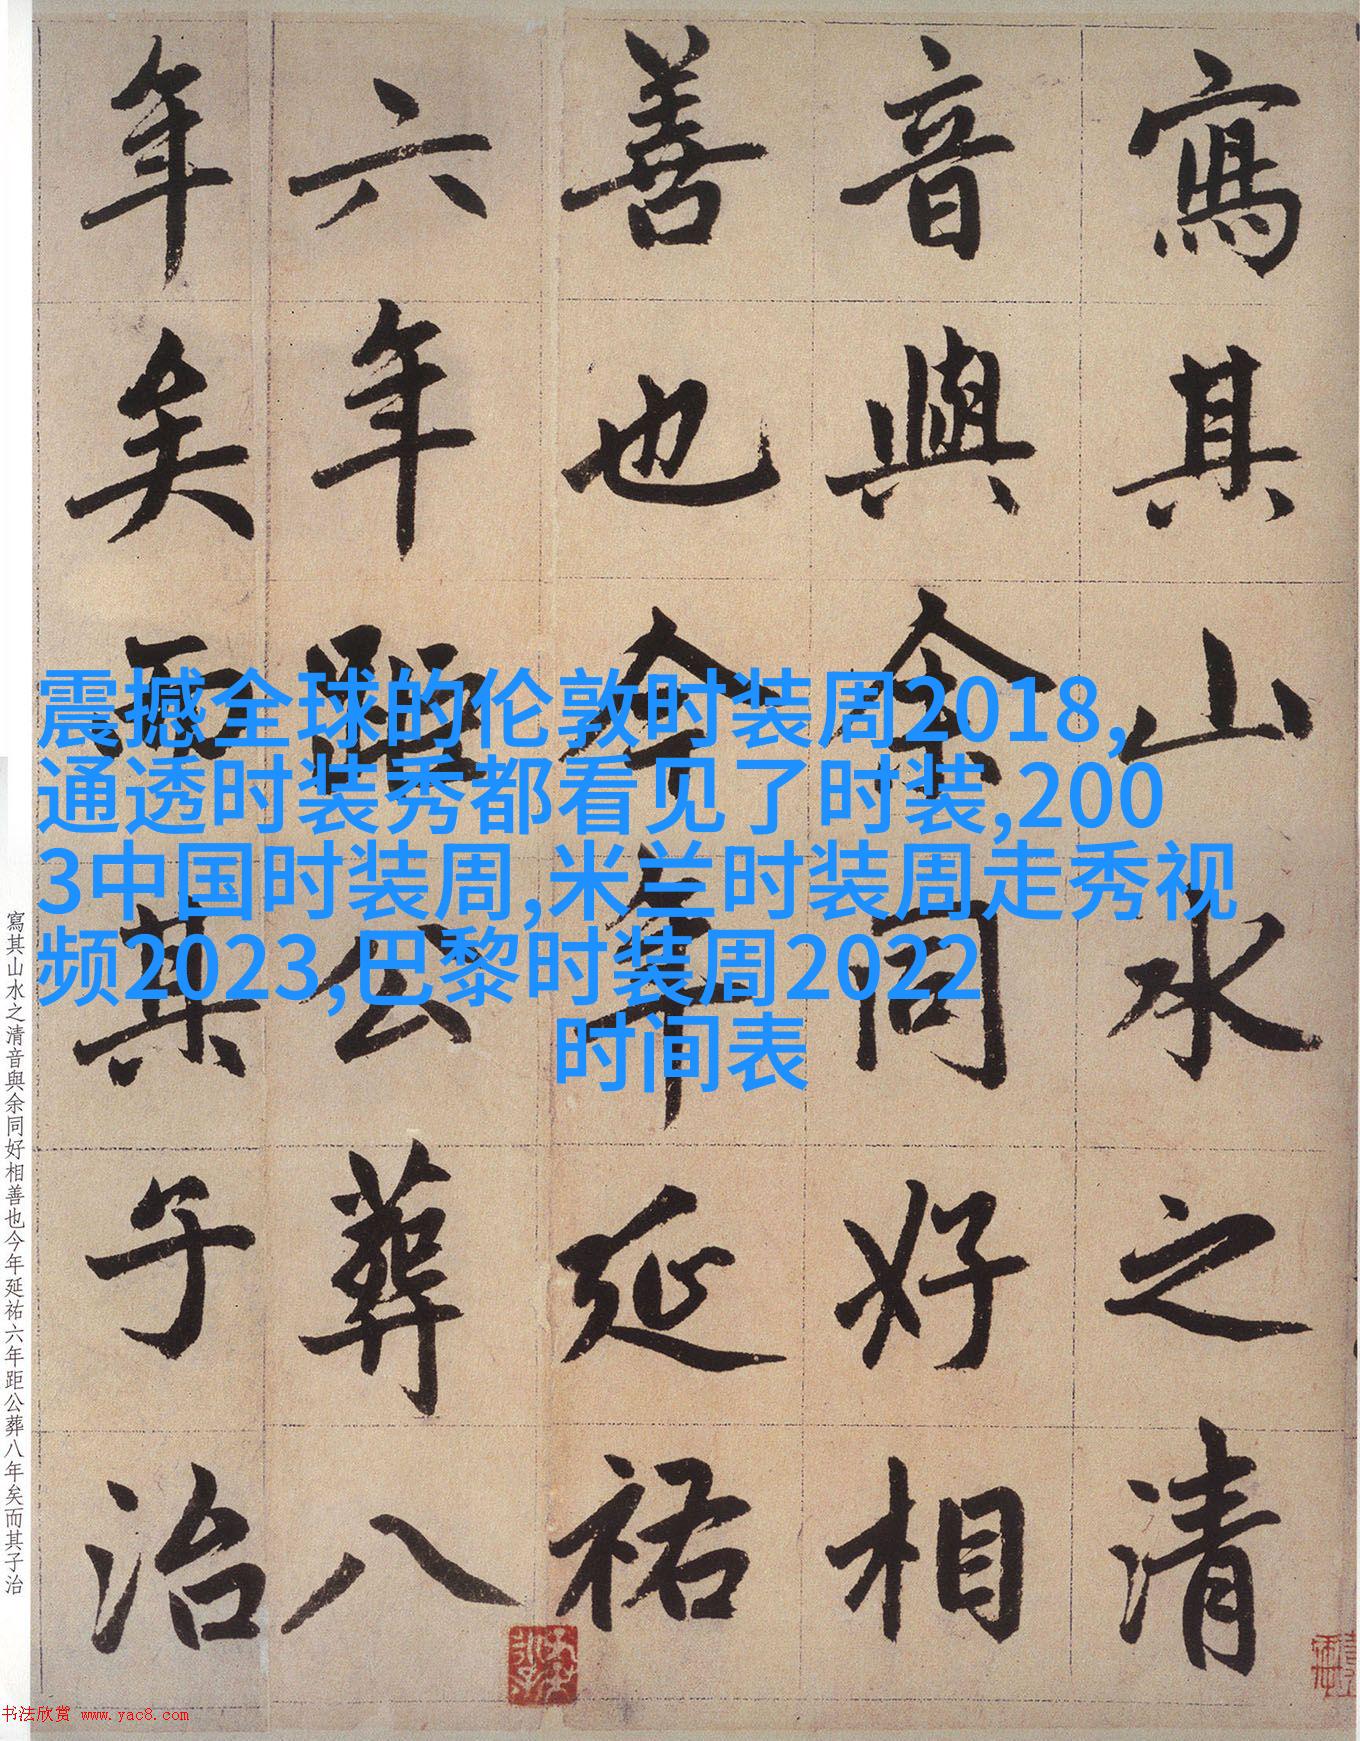 寫其山水之清
音與余同好相
善也今年延祐
六年距公葬八
年矣而其子治
震撼全球的伦敦时装周2018,
通透时装秀都看见了时装,200
3中国时装周,米兰时装周走秀视
频2023,巴黎时装周2022
时间表
寫其山水之清音與余同好相善也今年延祐六年距公葬八年矣而其子治
书法欣赏 www.yac8.com